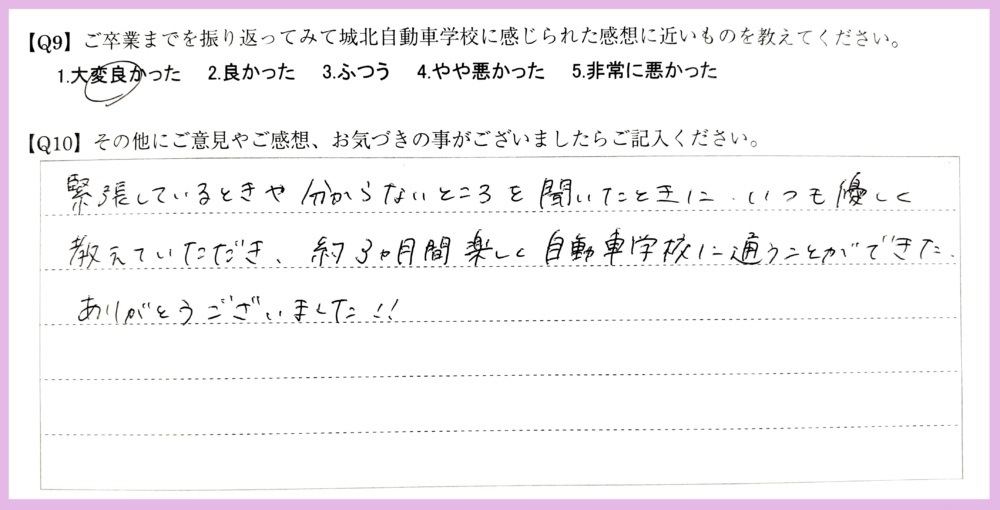 【Q9】ご卒業までを振り返ってみて城北自動車学校に感じられた感想に近いものを教えてください。
1.大変良かった 2.良かった 3.ふつう 4.やや悪かった 5.非常に悪かった
【Q10】その他にご意見やご感想、お気づきの事がございましたらご記入ください。
緊張しているときや分からないところを聞いたときに、いつも優しく
教えていただき、約3ヵ月間楽しく自動車学校に通うことができた。
ありがとうございました!!